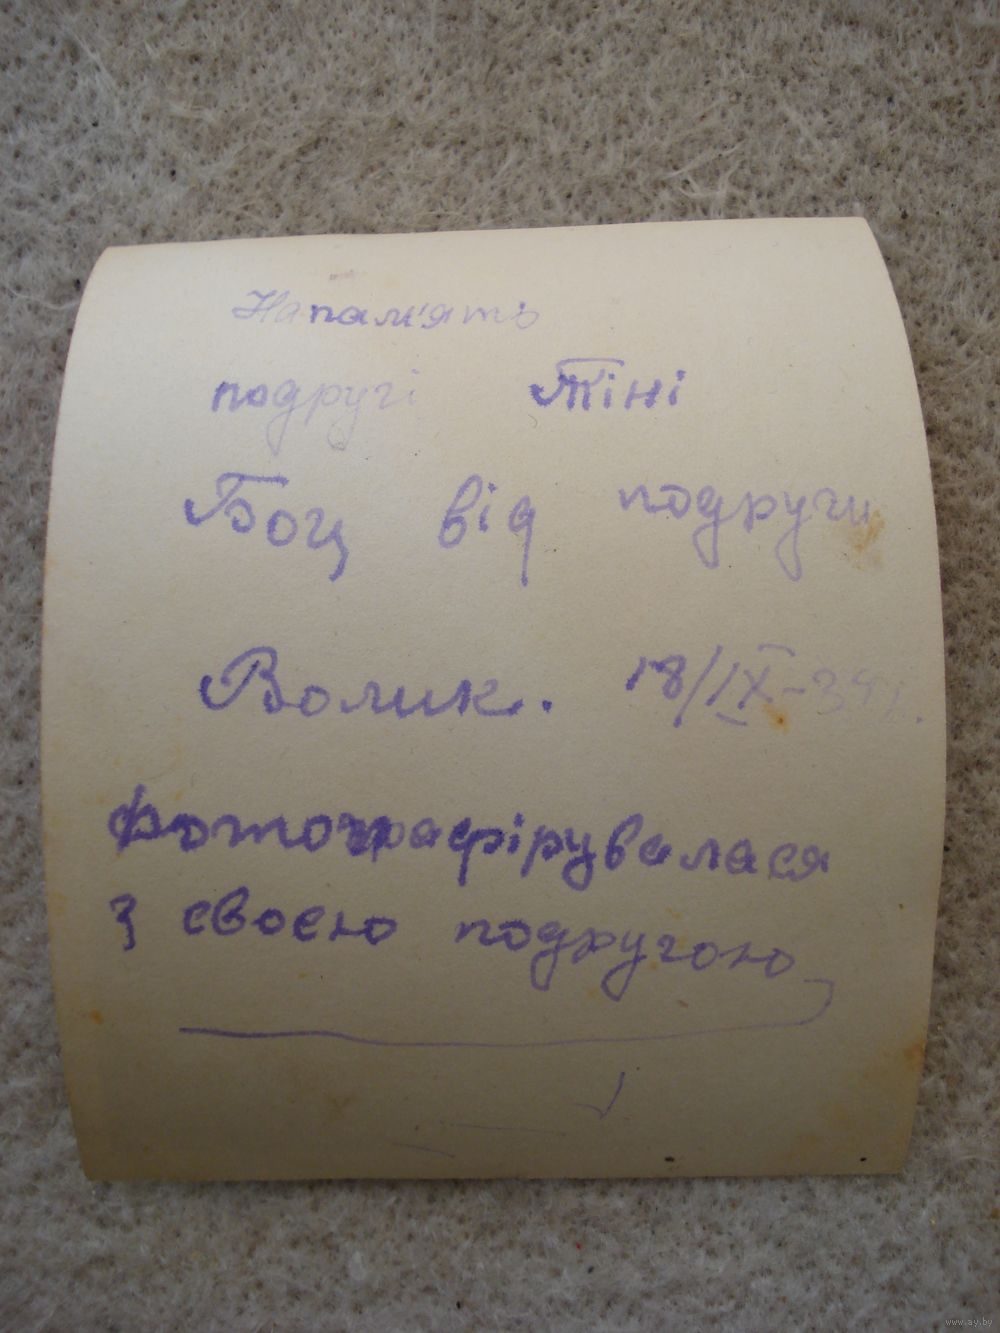 На пам'ять
подругі Тіні
Боц від подруги
Волик. 18/IX-39р.
Фотографірувалася
з своєю подругою
www.ay.by